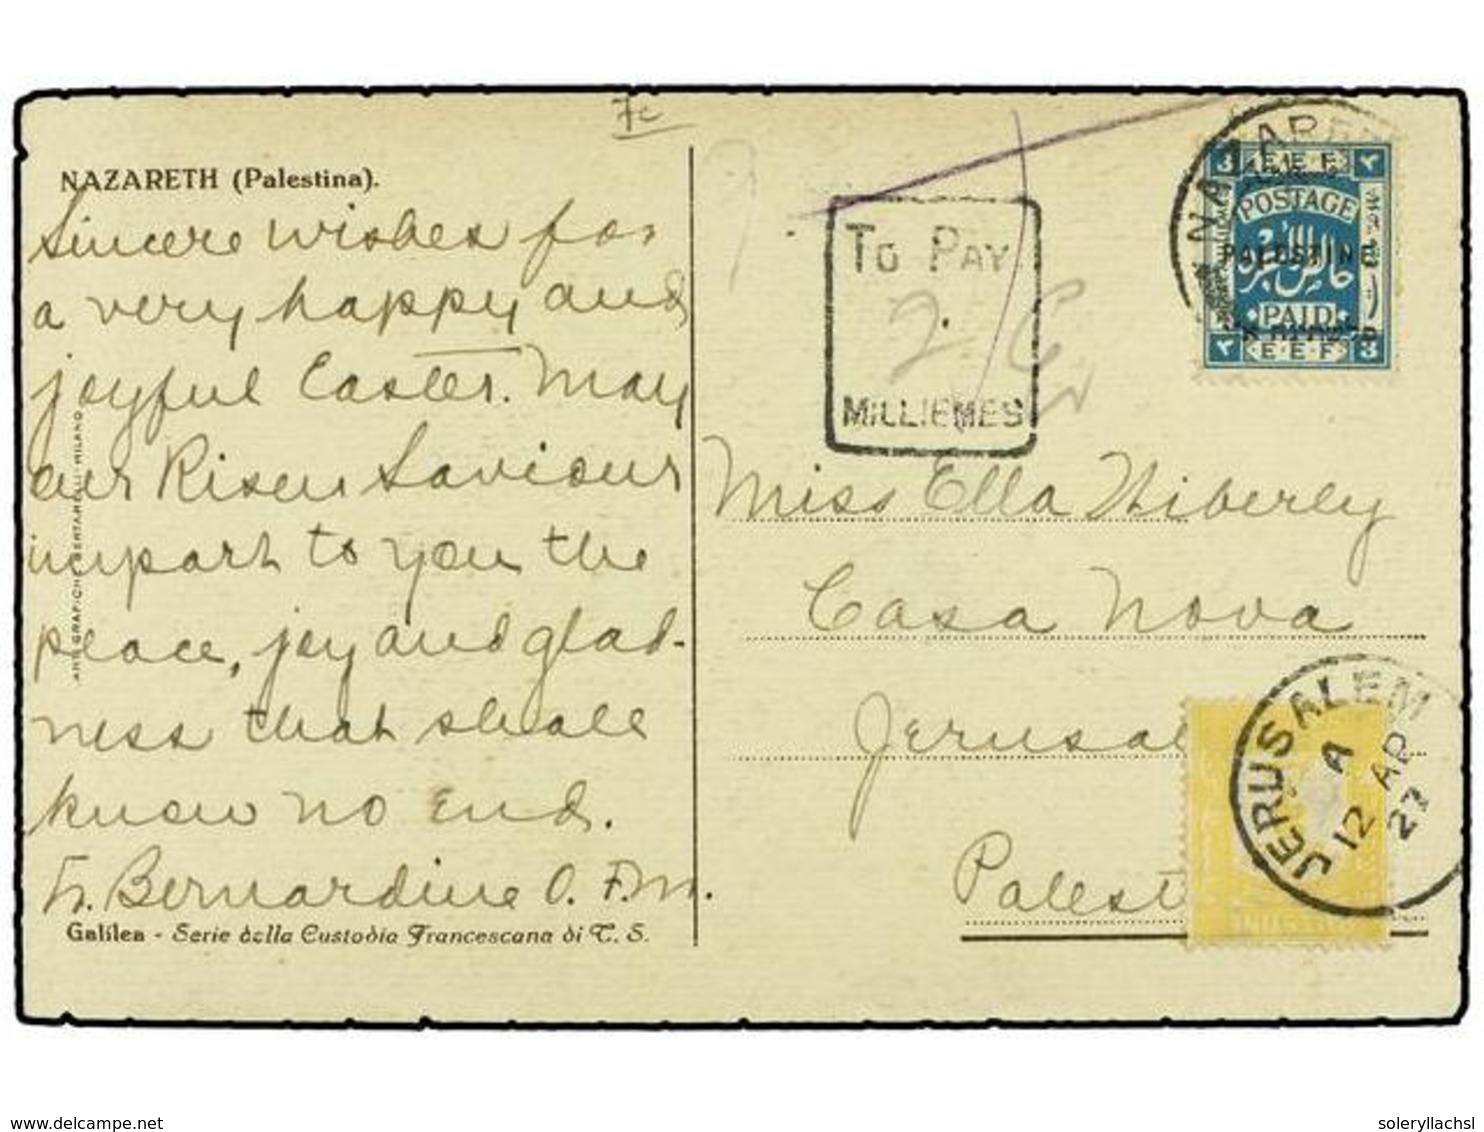 7c
NAZARETH (Palestina).
Sincere wishes for
a very happy and
joyful Easter. May
our Risen Saviour
impart to you the
peace, joy and glad-
ness that shall
know no end.
Fr. Bernardine O.F.M.
Galilea - Serie della Custodia Francescana di T. S.
MILANO
TO PAY
2
MILLIEMES
NAZARE
3 E.E.F ٣
POSTAGE
PALESTINE
PAID
٣ E·E·F 3
Miss Ella
Casa Nova
Jerusal
Palest
JERUSALEM
A
12 AP
27
delcampe.net
soleryllachsl